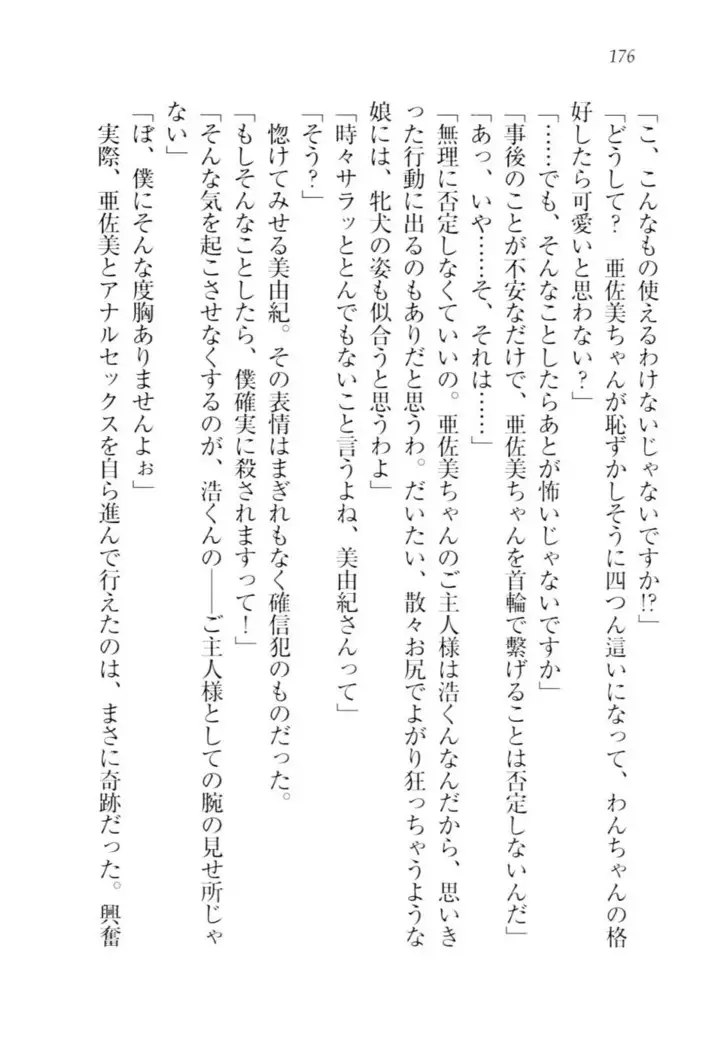 176
「こ、こんなもの使えるわけないじゃないですか!?」
「どうして？　亜佐美ちゃんが恥ずかしそうに四つん這いになって、わんちゃんの格
好したら可愛いと思わない？」
「……でも、そんなことしたらあとが怖いじゃないですか」
「事後のことが不安なだけで、亜佐美ちゃんを首輪で繋げることは否定しないんだ」
「あっ、いや……そ、それは……」
「無理に否定しなくていいの。亜佐美ちゃんのご主人様は浩くんなんだから、思いき
った行動に出るのもありだと思うわ。だいたい、散々お尻でよがり狂っちゃうような
娘には、牝犬の姿も似合うと思うわよ」
「時々サラッととんでもないこと言うよね、美由紀さんって」
「そう？」
惚けてみせる美由紀。その表情はまぎれもなく確信犯のものだった。
「もしそんなことしたら、僕確実に殺されますって！」
「そんな気を起こさせなくするのが、浩くんの――ご主人様としての腕の見せ所じゃ
ない」
「ぼ、僕にそんな度胸ありませんよぉ」
実際、亜佐美とアナルセックスを自ら進んで行えたのは、まさに奇跡だった。興奮